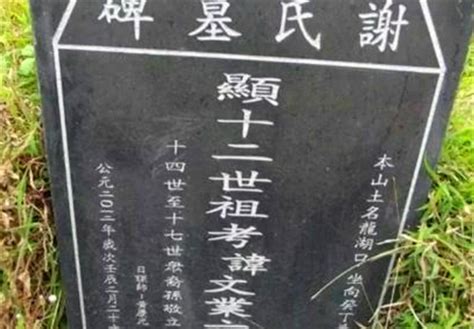 謝氏墓碑
本山土名龍湖口 坐向癸丁
顯十二世祖考諱文業
十四世至十七世衆裔孫敬立
日課師:黄慶
公元二〇一二年歲次壬辰二月二十